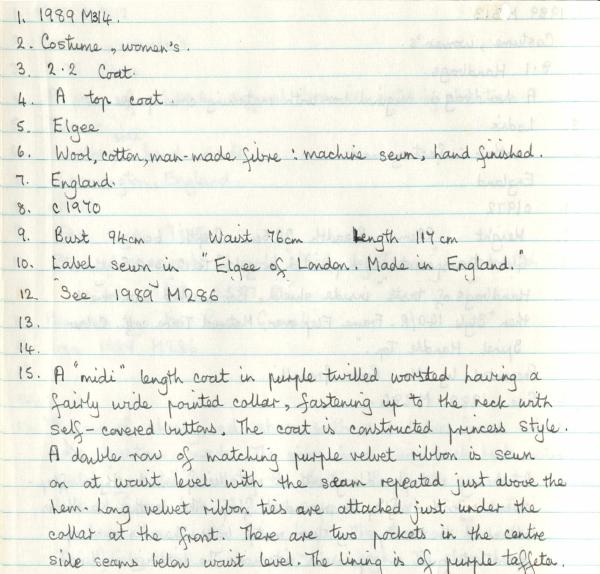 1. 1989 M314.
2. Costume, women's.
3. 2.2 Coat.
4. A top coat.
5. Elgee
6. Wool, cotton, man-made fibre : machine sewn, hand finished.
7. England.
8. c1970
9. Bust 94cm Waist 76cm Length 117cm
10. Label sewn in "Elgee of London. Made in England."
12. See 1989 M286
13.
14.
15. A "midi" length coat in purple twilled worsted having a
fairly wide pointed collar, fastening up to the neck with
self-covered buttons. The coat is constructed princess style.
A double row of matching purple velvet ribbon is sewn
on at waist level with the seam repeated just above the
hem. Long velvet ribbon ties are attached just under the
collar at the front. There are two pockets in the centre
side seams below waist level. The lining is of purple taffeta.